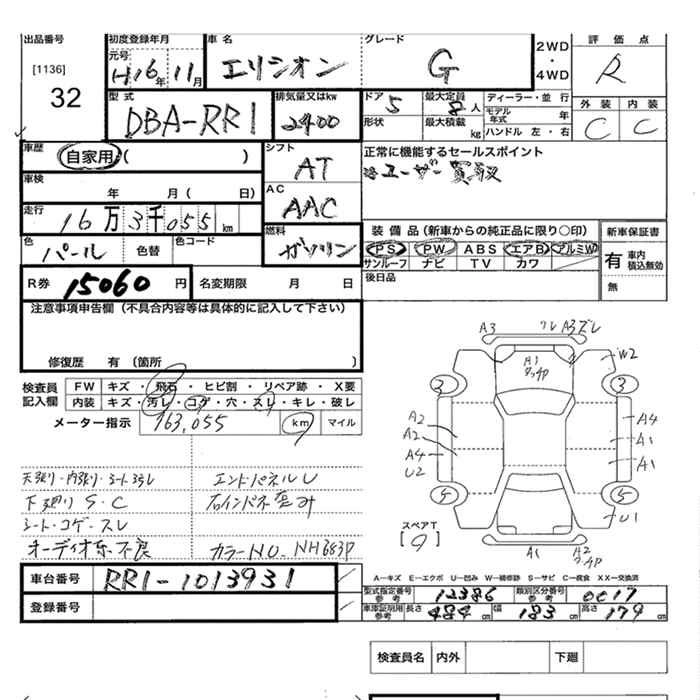 出品番号 初度登録年月 車名 グレード 評価点
[1136] 元号 H16年 11月 エリシオン G 2WD・4WD R
32
型式 DBA-RR1 排気量又はkw 2400 ドア 5 最大定員 8人 ディーラー・並行 外装 内装
形状 最大積載 kg モデル年式 年 C C
ハンドル 左・右
車歴 自家用 ( ) シフト AT 正常に機能するセールスポイント
車検 年 月( 日) AC AAC ユーザー買取
走行 16万3千055km
色 パール 色替 色コード 燃料 ガソリン
装備品(新車からの純正品に限り○印) 新車保証書
PS PW ABS エアB アルミW 有 車内積込無効
サンルーフ ナビ TV カワ
R券 15060円 名変期限 月 日 後日品 無
注意事項申告欄(不具合内容等は具体的に記入して下さい)
修復歴 有(箇所 )
検査員記入欄 FW キズ・飛石・ヒビ割・リペア跡・X要
内装 キズ・汚レ・コゲ・穴・スレ・キレ・破レ
メーター指示 163,055 km マイル
天張り・内張り・シートヨゴレ エンドパネルU
下廻りS・C 右インパネ歪み
シート・コゲ・スレ
オーディオ系不良 カラーNO. NH683P
A3 リレ A3ズレ
A1 タッチP W2
3 3
A2 A4
A2 A1
A4 A1
U2
4 5
U1
スペアT [9]
A1 A2 タッチP
車台番号 RR1-1013931
登録番号
A－キズ E－エクボ U－凹み W－補修跡 S－サビ C－腐食 XX－交換済
型式指定番号 参考 12386 類別区分番号 参考 0017
車庫証明用 参考 長さ 484cm 幅 183cm 高さ 179cm
検査員名 内外 下廻